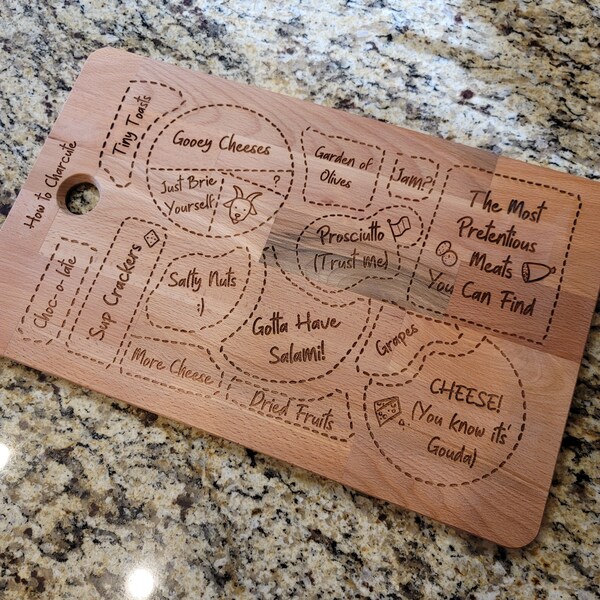 How to Charcute
Tiny Toasts
Gooey Cheeses
Just Brie
Yourself
?
Garden of
Olives
Jam?!
The Most
Pretentious
Meats
You Can Find
Prosciutto
(Trust me)
Choc-o-late
Sup Crackers
Salty Nuts
:)
Gotta Have
Salami!
Grapes
More Cheese
Dried Fruits
CHEESE!
(You know its'
Gouda)